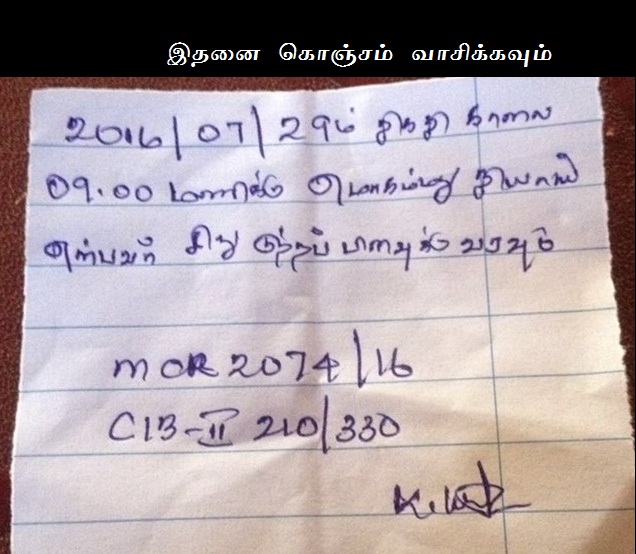 இதனை கொஞ்சம் வாசிக்கவும்
2016/07/29ம் திகதி காலை
09.00 மணிக்கு மொகம்மது நியாஸ்
என்பவர் சிறு குற்றப் பிரிவுக்கு வரவும்
MCR 2074/16
CIB-II 210/330